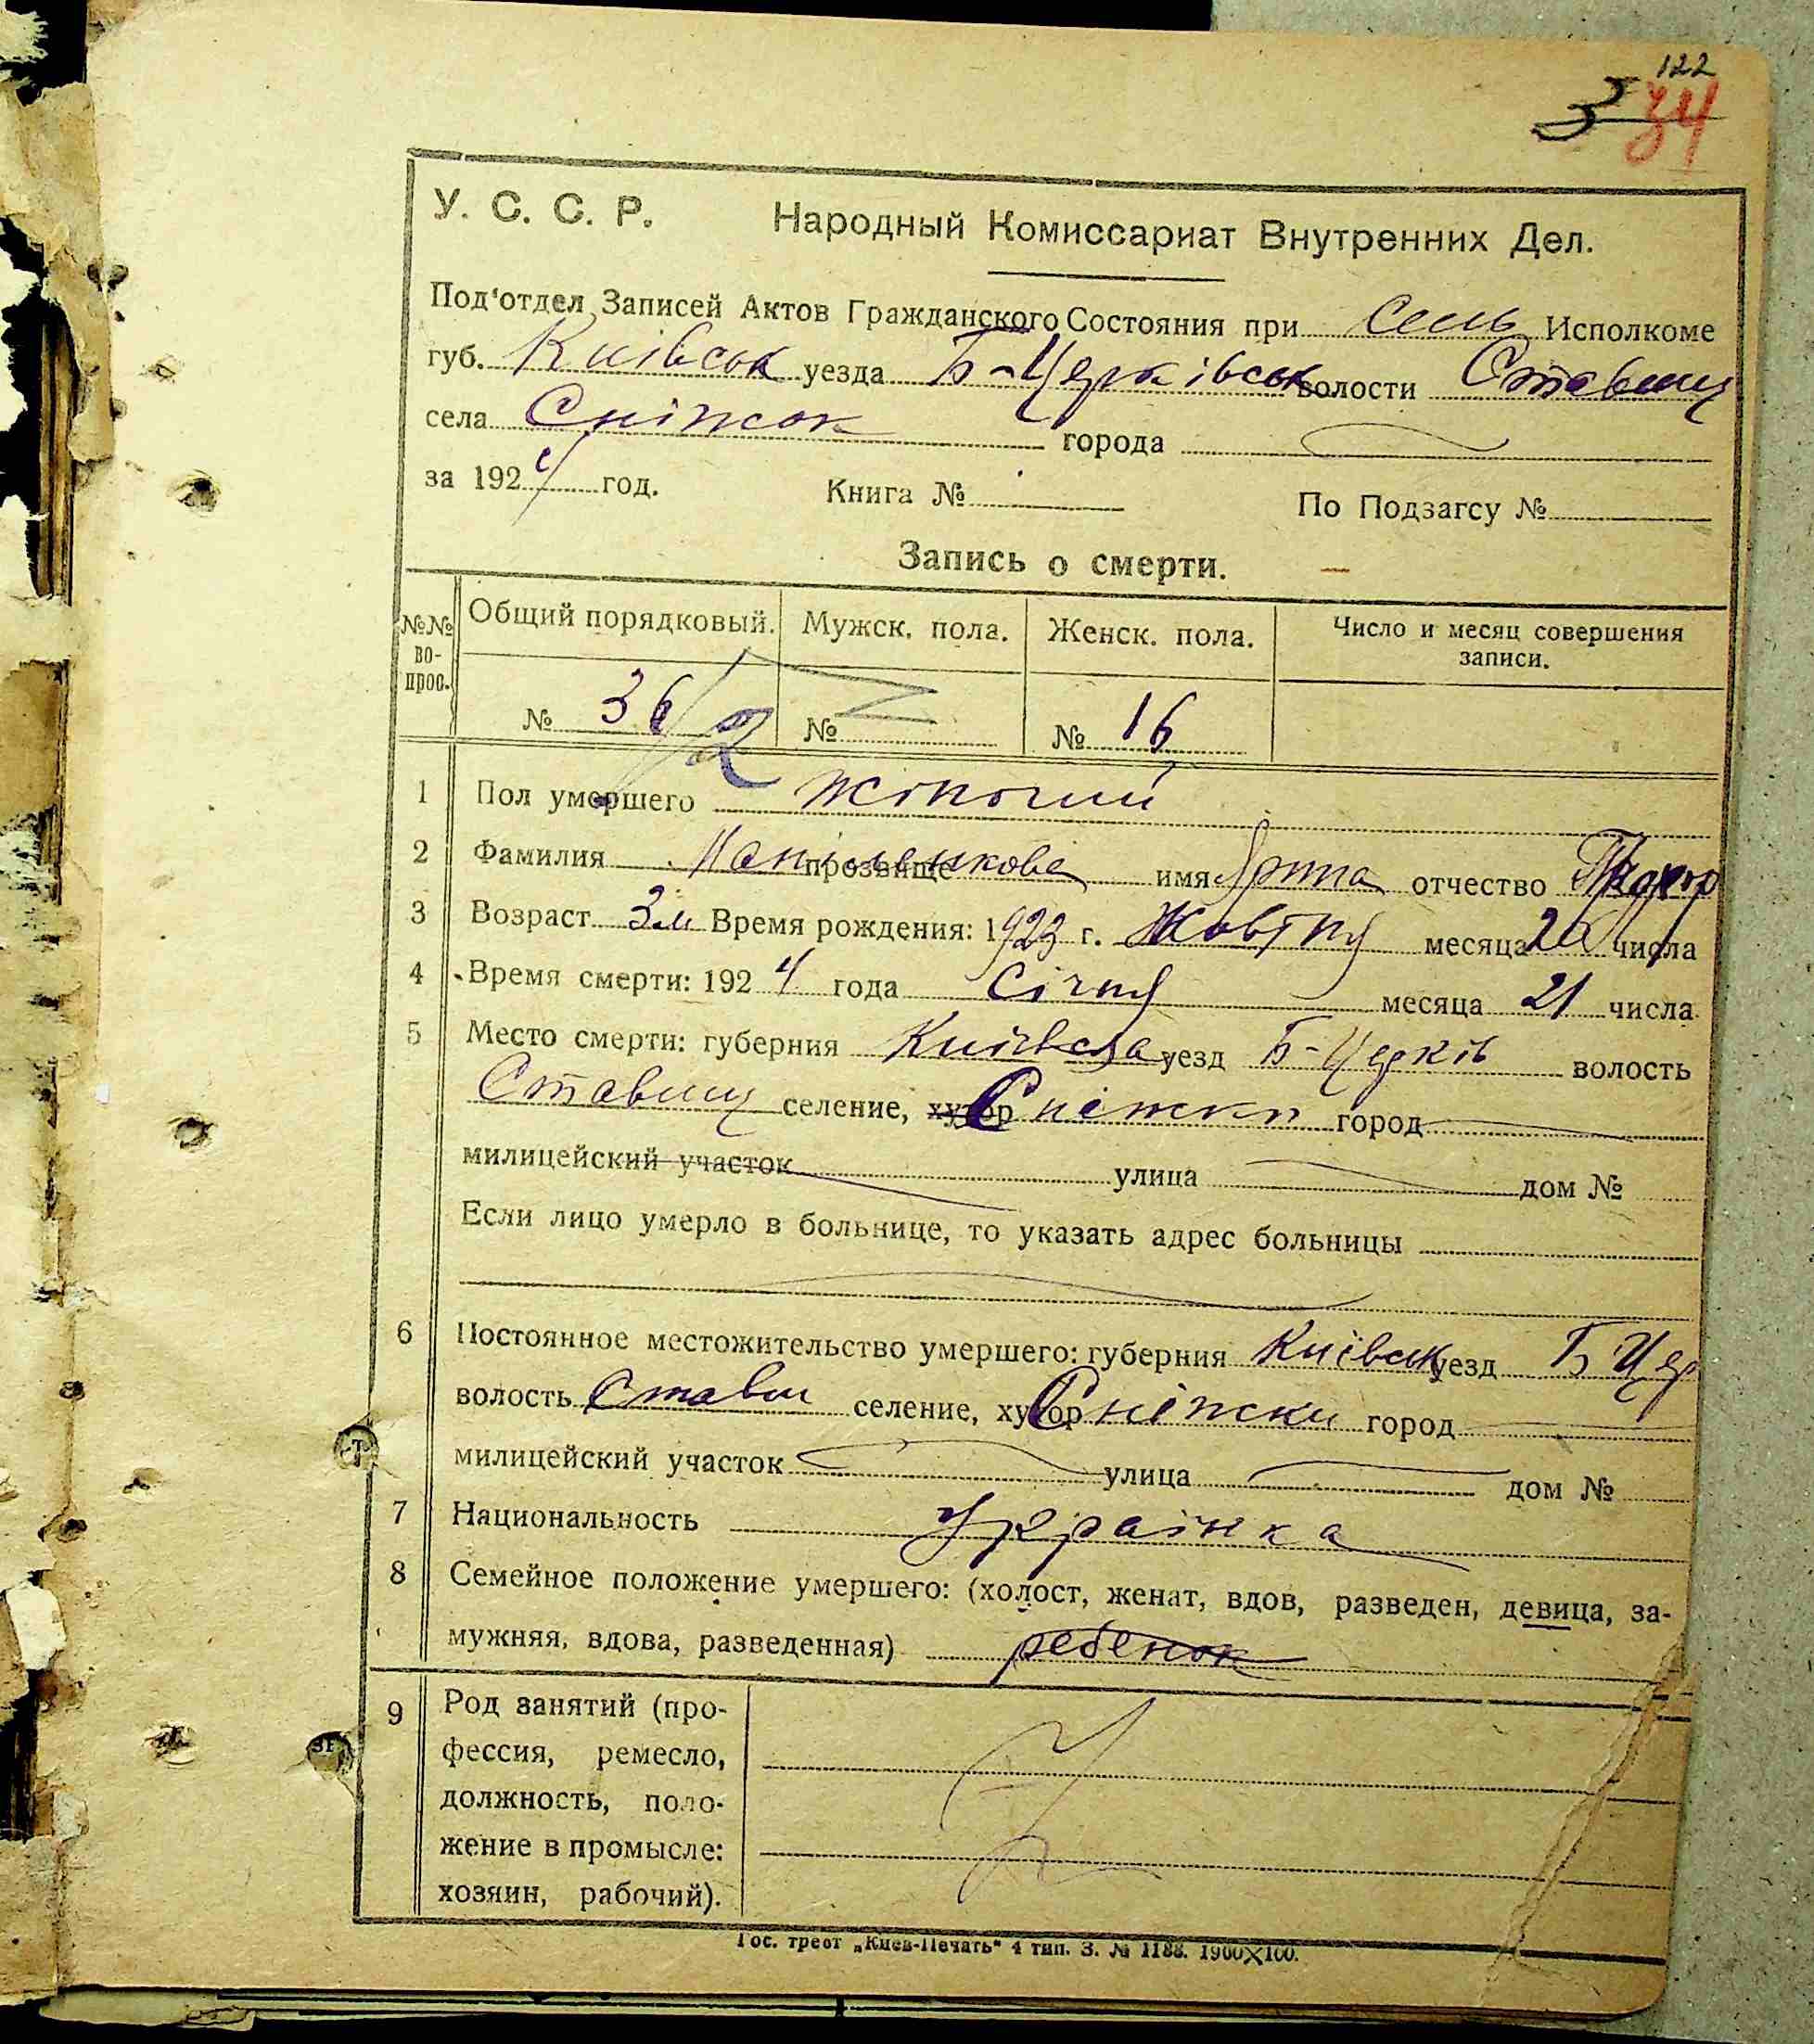 122
3 34
У. С. С. Р. Народный Комиссариат Внутренних Дел.
Под'отдел Записей Актов Гражданского Состояния при Сель Исполкоме
губ. Київськ уезда Б-Церківськ волости Ставищ
села Сніжок города
за 1924 год. Книга № По Подзагсу №
Запись о смерти.
№№ во-прос. Общий порядковый. Мужск. пола. Женск. пола. Число и месяц совершения записи.
№ 36/2 № № 16
1 Пол умершего жіночий
2 Фамилия прозвище имя Ярина отчество
3 Возраст 3 м Время рождения: 1923 г. Жовтня месяца числа
4 Время смерти: 1924 года Січня месяца 21 числа
5 Место смерти: губерния Київська уезд Б-Церків волость
Ставищ селение, хутор Сніжки город
милицейский участок улица дом №
Если лицо умерло в больнице, то указать адрес больницы
6 Постоянное местожительство умершего: губерния Київськ уезд Б Цер
волость Ставищ селение, хутор Сніжки город
милицейский участок улица дом №
7 Национальность Українка
8 Семейное положение умершего: (холост, женат, вдов, разведен, девица, за-
мужняя, вдова, разведенная) ребенок
9 Род занятий (про-
фессия, ремесло,
должность, поло-
жение в промысле:
хозяин, рабочий).
Гос. трест „Киев-Печать" 4 тип. З. № 1188. 1900X100.